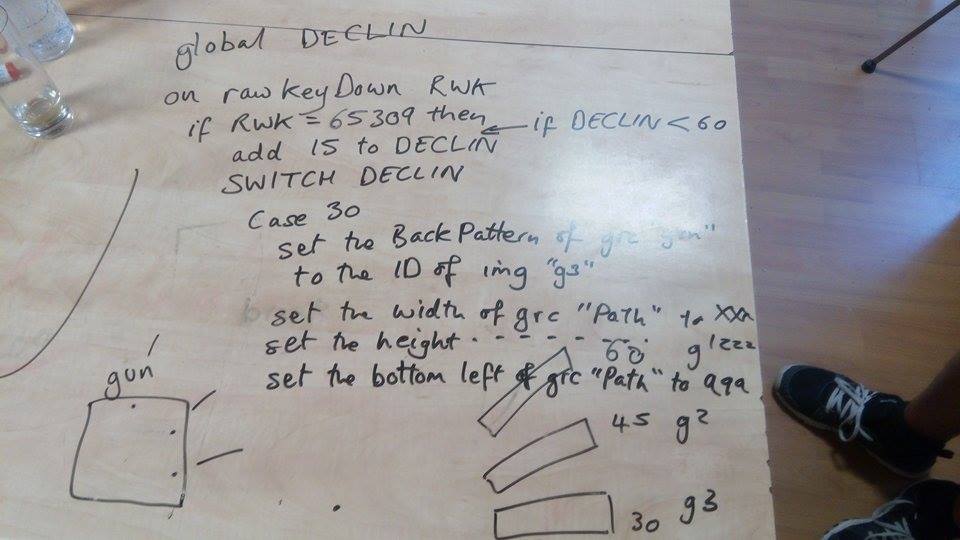 global DECLIN
on rawKeyDown RWK
if RWK = 65309 then ← if DECLIN < 60
add 15 to DECLIN
SWITCH DECLIN
Case 30
set the BackPattern of grc "gun"
to the ID of img "g3"
set the width of grc "Path" to xxx
set the height - - - - - zzz
set the bottom left of grc "Path" to aqa
gun
60 g1
45 g2
30 g3